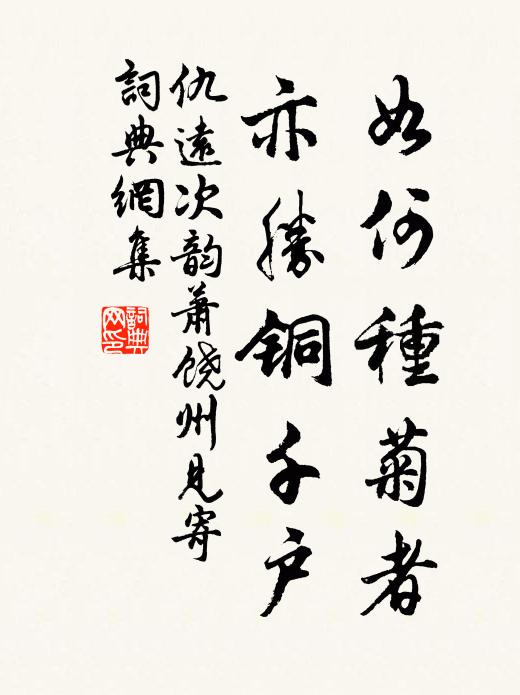 如何種菊者
亦勝銅千户
仇遠次韵萧饶州見寄
詞典網集
詞典
网印